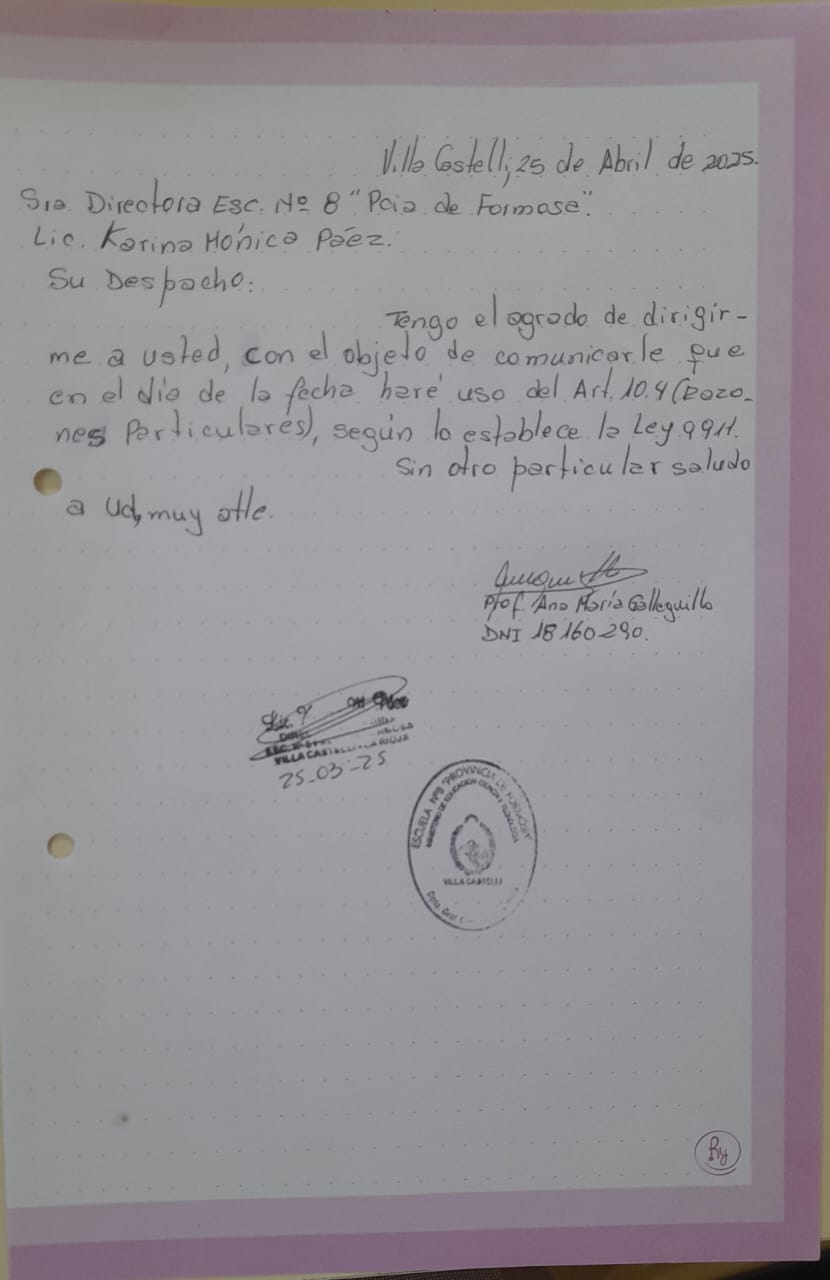 Villa Castelli, 25 de Abril de 2025.
Sra Directora Esc. Nº 8 "Pcia de Formosa".
Lic. Karina Mónica Páez.
Su Despacho:
Tengo el agrado de dirigir-
me a usted, con el objeto de comunicarle que
en el día de la fecha haré uso del Art. 10.4 (Razo-
nes Particulares), según lo establece la Ley 9911.
Sin otro particular saludo
a Ud, muy atte.
Prof. Ana María Galleguillo
DNI 18160290.
Lic.
VILLA CASTELLI - LA RIOJA
25-03-25
ESCUELA Nº8 "PROVINCIA DE FORMOSA"
MINISTERIO DE EDUCACION CIENCIA Y TECNOLOGIA
VILLA CASTELLI
Dpto. Gral
Ry